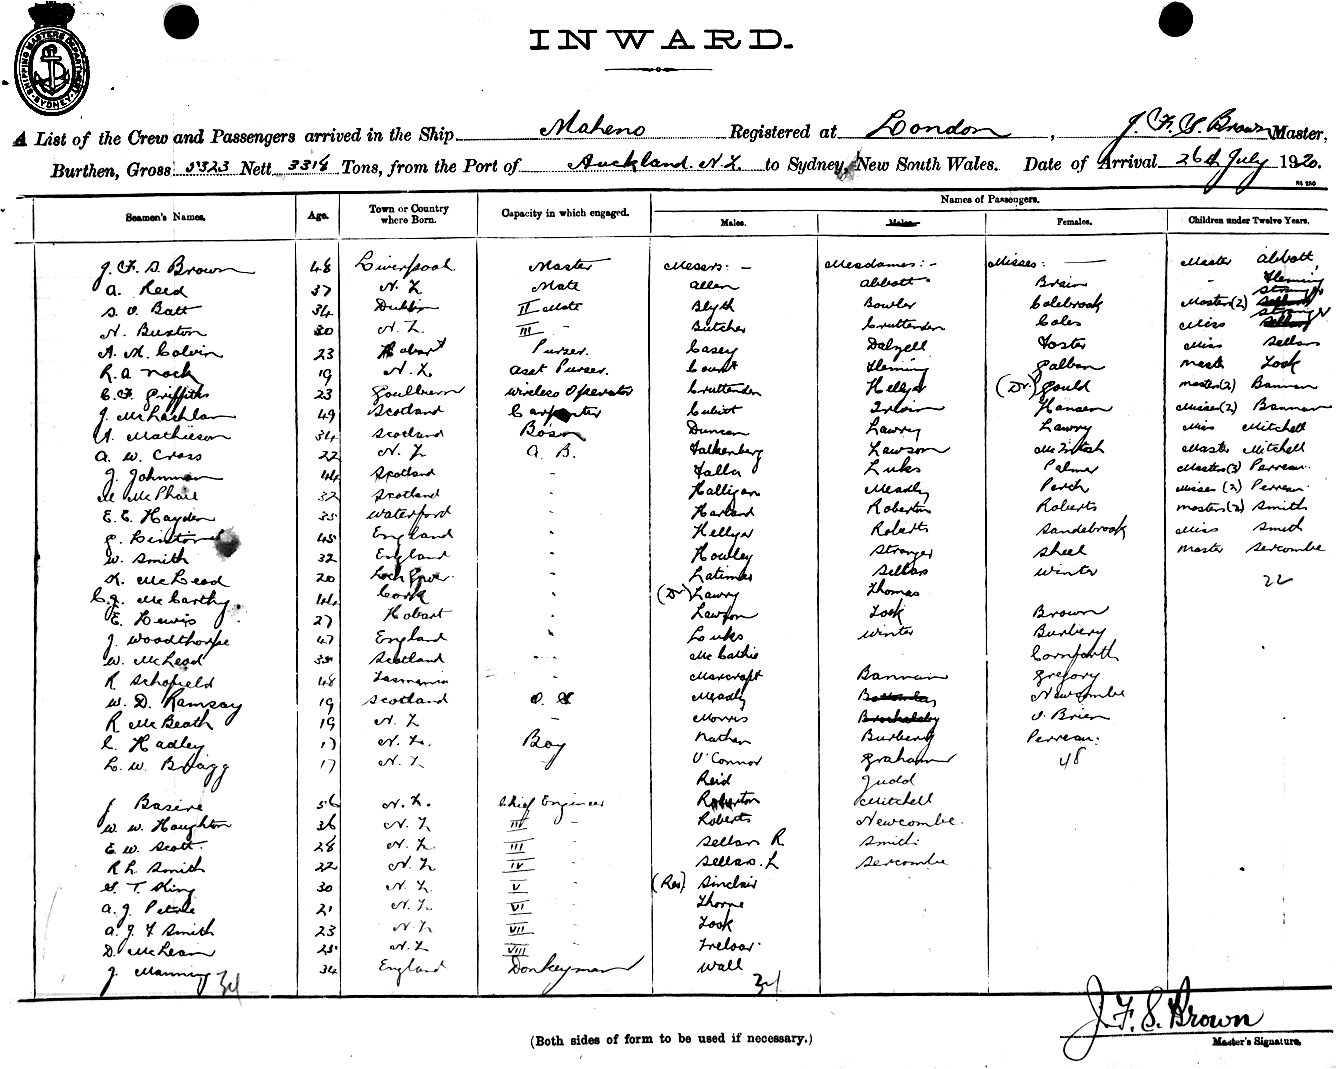 INWARD.
SHIPPING MASTERS DEPARTMENT SYDNEY
A List of the Crew and Passengers arrived in the Ship Maheno Registered at London, J. F. S. Brown Master,
Burthen, Gross 5323 Nett 3318 Tons, from the Port of Auckland. N.Z. to Sydney, New South Wales. Date of Arrival 26th July 1920.
Seamen's Names. Age. Town or Country where Born. Capacity in which engaged. Names of Passengers.
Males. Males. Females. Children under Twelve Years.
J. F. S. Brown 48 Liverpool Master Messrs:- Mesdames:- Misses:- Master Abbott
A. Reed 37 N.Z. Mate Allen Abbott Brain Fleming
S. O. Batt 34 Dublin II Mate Blyth Bowler Colebrook Masters (2)
N. Buxton 30 N.Z. III - Butcher Cruttenden Coles Miss
A. M. Colvin 23 Hobart Purser. Casey Dalzell Foster Miss Sellars
R. A. Nock 19 N.Z. Asst Purser. Court Fleming Master Took
C. F. Griffiths 23 Goulburn Wireless Operator Cruttenden Hellyer (Dr) Gould Masters (2) Bannan
J. McLachlan 49 Scotland Carpenter Hansen Misses (2) Bannan
A. Mathieson 34 Scotland Bosn Duncan Lawry Lawry Miss Mitchell
A. W. Cross 22 N.Z. A. B. Falkenberg Lawson McIntosh Master Mitchell
J. Johnman 44 Scotland - Luks Palmer Masters (3) Perreau
M McPhail 32 Scotland - Halligan Meadly Perch Misses (2) Perreau
E. E. Hayden 35 Waterford - Harland Roberton Roberts Masters (2) Smith
45 England - Hellyer Roberts Sandebrook Miss Smith
W. Smith 32 England - Howley Stranger Sheel Master Sercombe
K. McLeod 20 - Latimer Sellars Winter 22
C. J. McCarthy. 44 Cork - (Dr) Lawry Thomas
E. Lewis 27 Hobart - Lawson Took Brown
J. Woodthorpe 47 England - Louks Winter Burbery
W. McLeod Scotland - Cornforth
R Schofield 48 Tasmania Marcroft Bannan Gregory
W. D. Ramsay 19 Scotland O. S Meadly Newcombe
R McBeath 19 N.Z. - Morris O'Brien
C. Hadley 17 N.Z. Boy Nathan Burbery Perreau.
L. W. Bragg 17 N.Z. O'Connor Graham 48
Reid Judd
J Basire 56 N.Z. Chief Engineer Roberton Mitchell
W. W. Houghton 36 N.Z. Roberts Newcombe.
E. W. Scott. 28 N.Z. III - Sellars R Smith
R L Smith 22 N.Z. IV - Sellars. L Sercombe
G. T. King 30 N.Z. V - (Rev) Sinclair
A. J. Petrie 21 N.Z. VI - Thorne
A. J. F Smith 23 N.Z. VII - Took
D. McLean 25 N.Z. VIII Treloar
J. Manning 34 England Donkeyman Wall
34 34
J. F. S. Brown
(Both sides of form to be used if necessary.) Master's Signature.